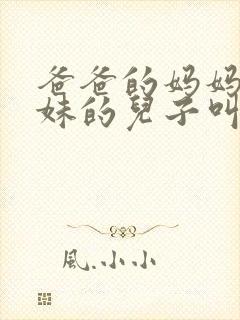 爸爸的妈妈
妹的兒子叫
風.小小